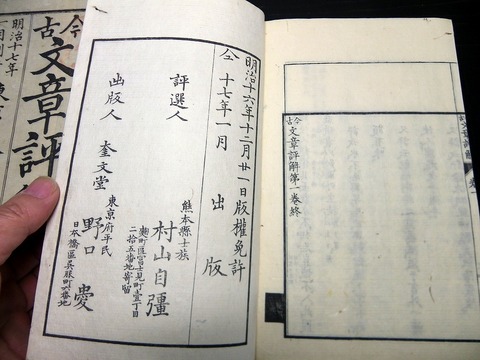 今古文章評解第一卷終
明治十六年十二月廿一日版權免許
仝 十七年一月 出版
熊本縣士族
評選人 村山自彊
麹町區富士見町壹丁目
二拾五番地寄留
出版人 奎文堂
東京府平民
野口 愛
日本橋區呉服町六番地
今古文章評
明治十七年